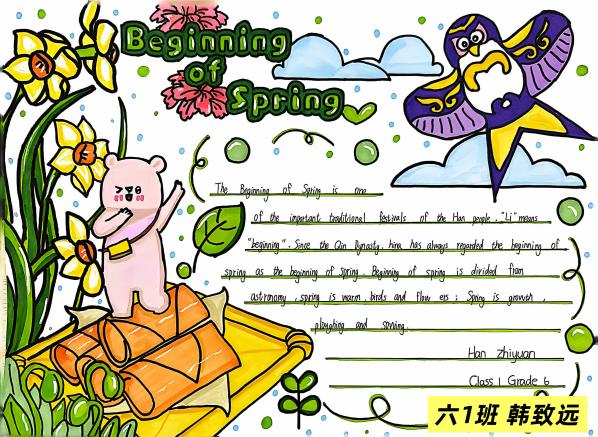 Beginning
of
Spring
The Beginning of Spring is one
of the important traditional festivals of the Han people. "Li" means
"beginning". Since the Qin Dynasty, hina has always regarded the beginning of
spring as the beginning of Spring. Beginning of spring is divided from
astronomy, spring is warm, birds and flow ers; Spring is growth,
ploughing and sowing.
Han Zhiyuan
Class 1 Grade 6
六1班 韩致远